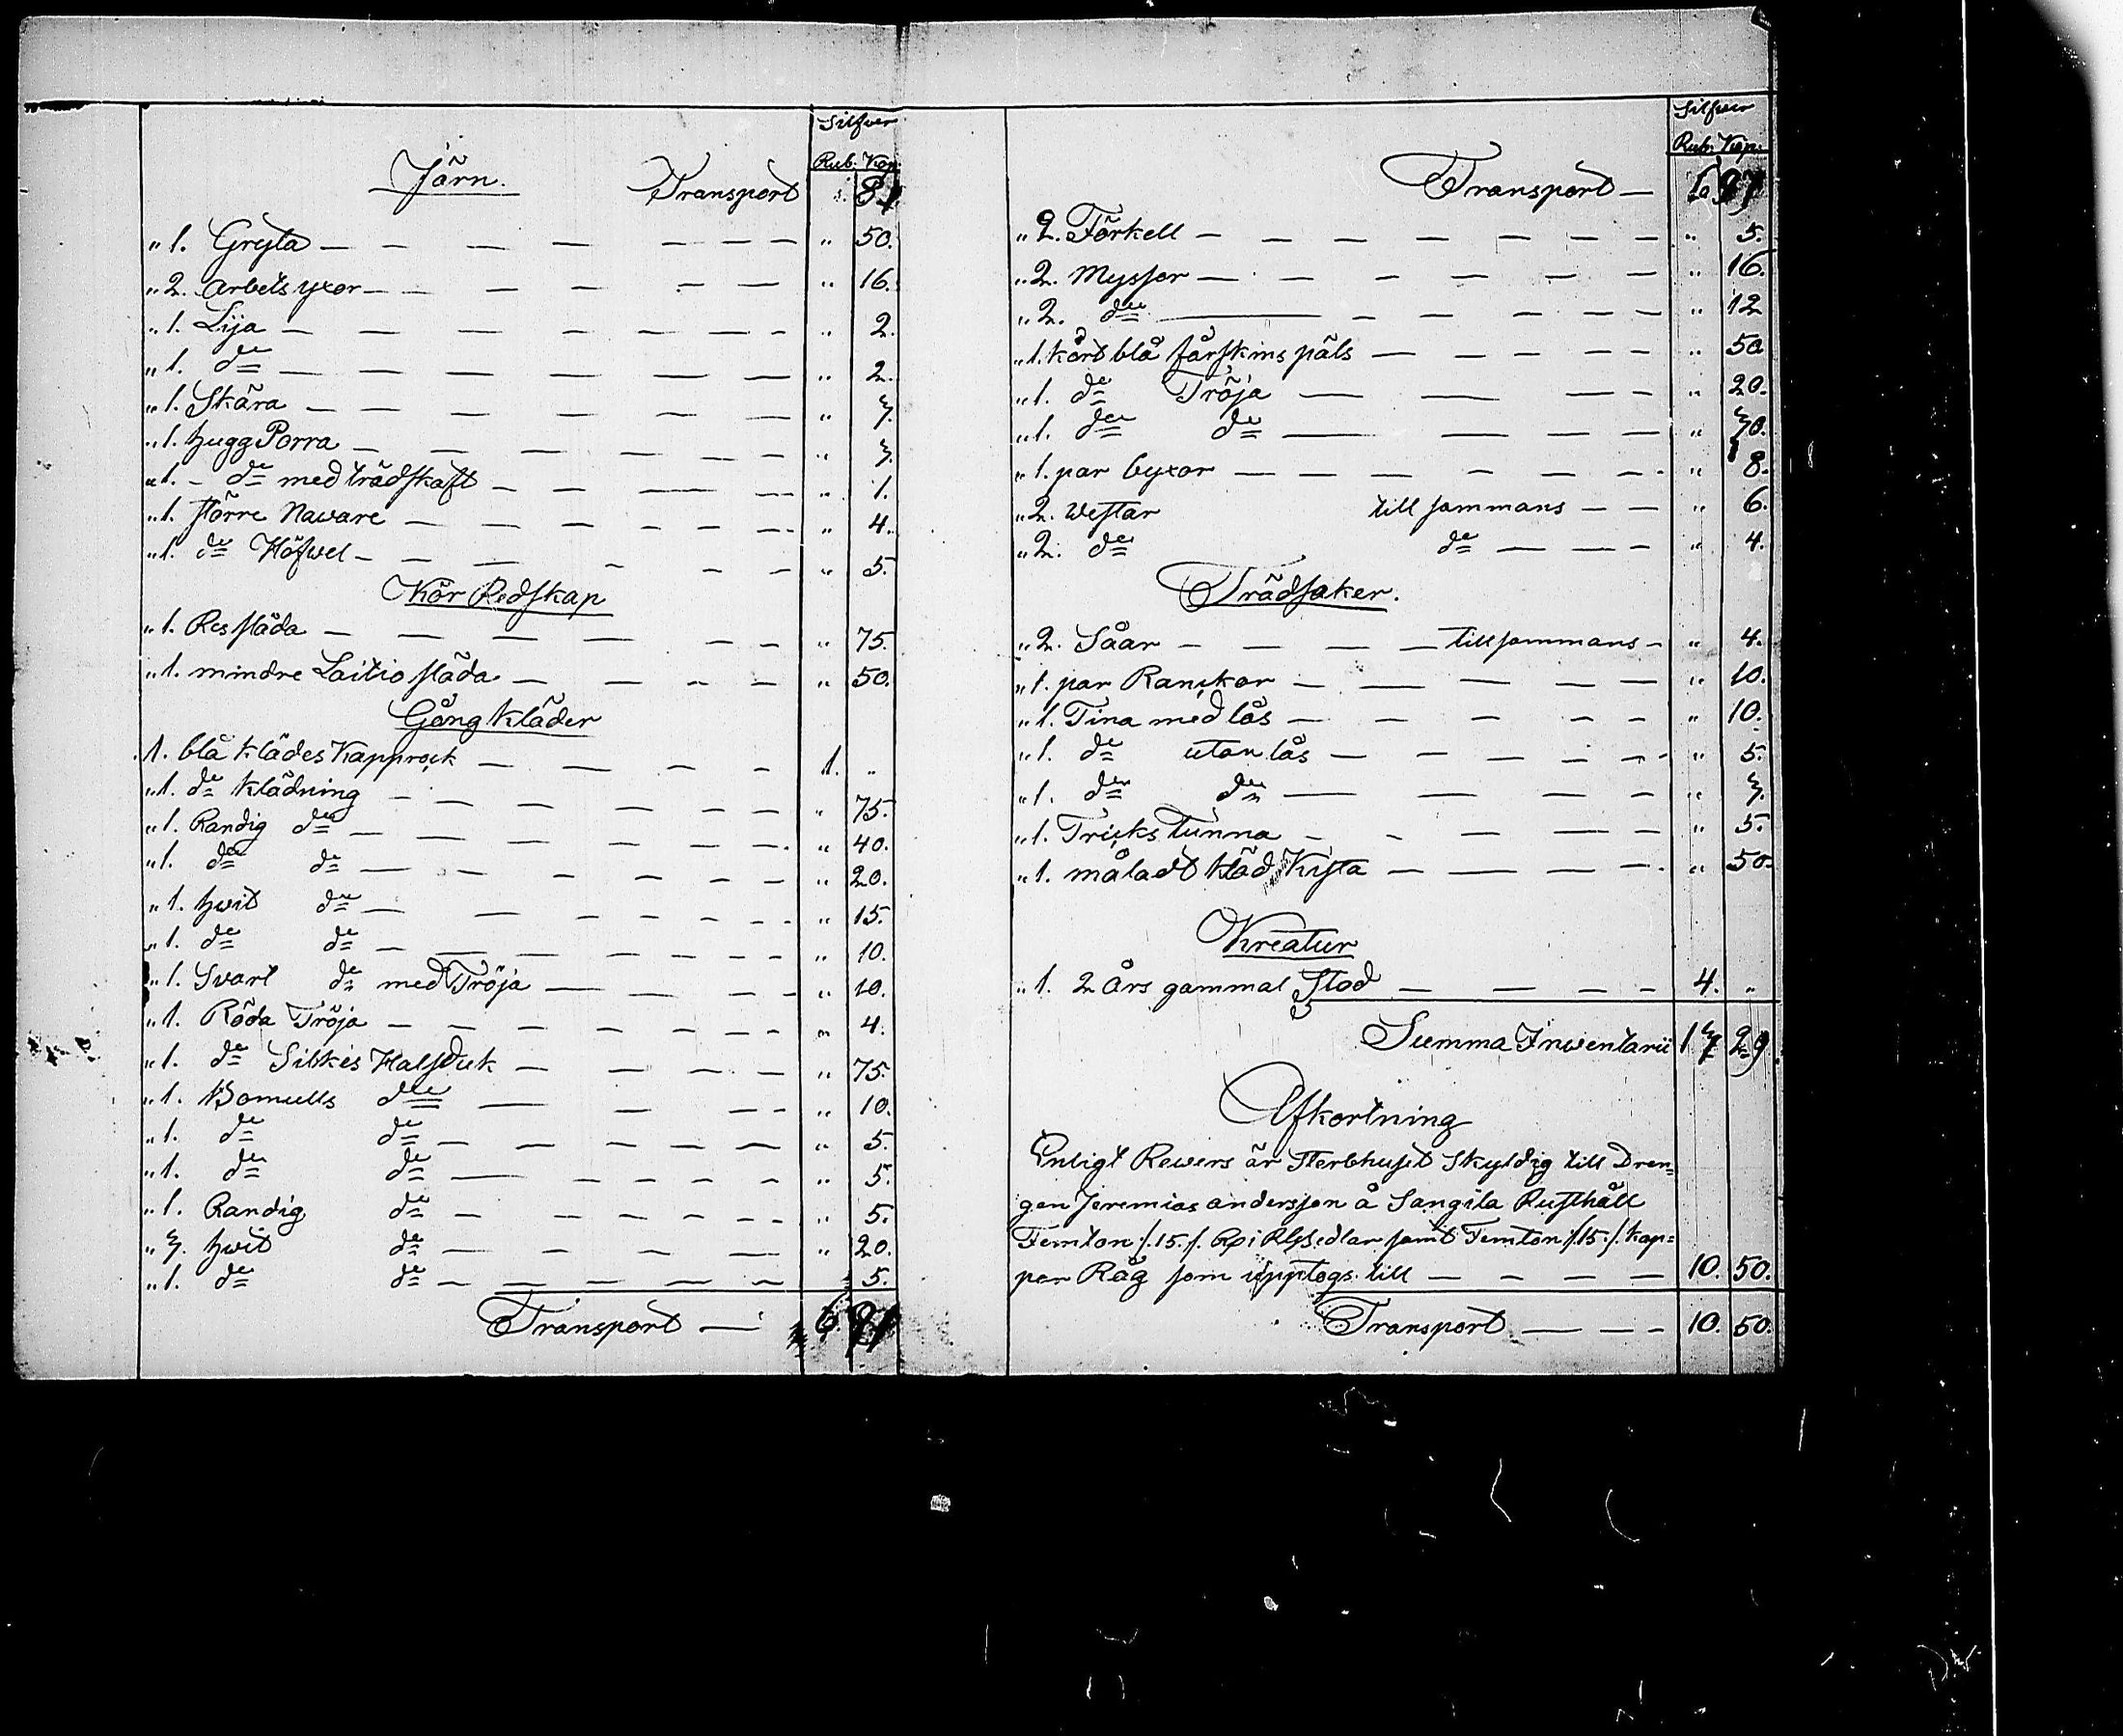 Silfver
Rub. Kop.
Järn. Transport
"1. Gryta — " 50.
"2. arbets yxor — " 16.
"1. Lija — " 2.
"1. de — " 2.
"1. Skära — " 3.
"1. hugg Porra — " 3.
"1. - de med trädskaft — " 1.
"1. större Naware — " 4.
"1. de Höfwel — " 5.
Kör Redskap
"1. Res släda — " 75.
"1. mindre Laitio släda — " 50.
Gång Kläder
1. blå klädes Kapprock — 1. "
"1. de Klädning — " 75.
"1. Randig de — " 40.
"1. de de — " 20.
"1. hwit de — " 15.
"1. de de — " 10.
"1. Svart de med Tröja — " 10.
"1. Röda Tröja — " 4.
"1. de Silkes Halsduk — " 75.
"1. Bomulls de — " 10.
"1. de de — " 5.
"1. de de — " 5.
"1. Randig de — " 5.
"3. hwit de — " 20.
"1. de de — 5.
Transport — 6.
Silfver
Rub. Kop.
Transport —
"2. Förkell — " 5.
"2. Myssor — " 16.
"2. de — " 12
"1. kort blå fårskins päls — " 50
"1. de Tröja — " 20.
"1. de de — " 30.
"1. par byxor — " 8.
"2. Westar till sammans — " 6.
"2. de de — " 4.
Trädsaker.
"2. Såar — tillsammans — " 4.
"1. par Ranckor — " 10.
"1. Tina med lås — " 10.
"1. de utan lås — " 5.
"1. de de — " 3.
"1. Tricks Tunna — " 5.
"1. måladt Kläd Kista — " 50.
Kreatur
"1. 2 Års gammal Stod — 4. "
Summa Inwentarii 17 29.
Afkortning
Enligt Rewers är Sterbhuset Skyldig till Dren=
gen Jeremias andersson å Sangila Rusthåll
Femton /.15./. Rp i Rgsedlar samt Femton /.15./. kap=
par Råg som upptogs till — 10. 50.
Transport — 10. 50.